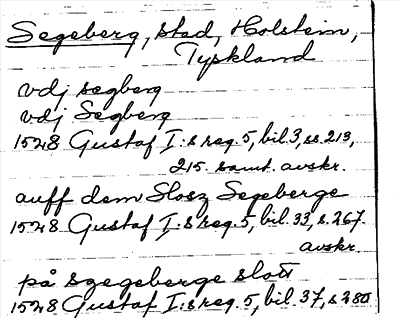 Segeberg, stad, Holstein,
Tyskland
vdj segberg
vdj Segberg
1528 Gustaf I:s reg. 5, bil. 3, ss. 213,
215. samt. avskr.
auff dem Slosz Segeberge
1528 Gustaf I:s reg. 5, bil. 33, s. 267.
avskr.
på szegeberge slott
1528 Gustaf I:s reg. 5, bil. 37, s 280